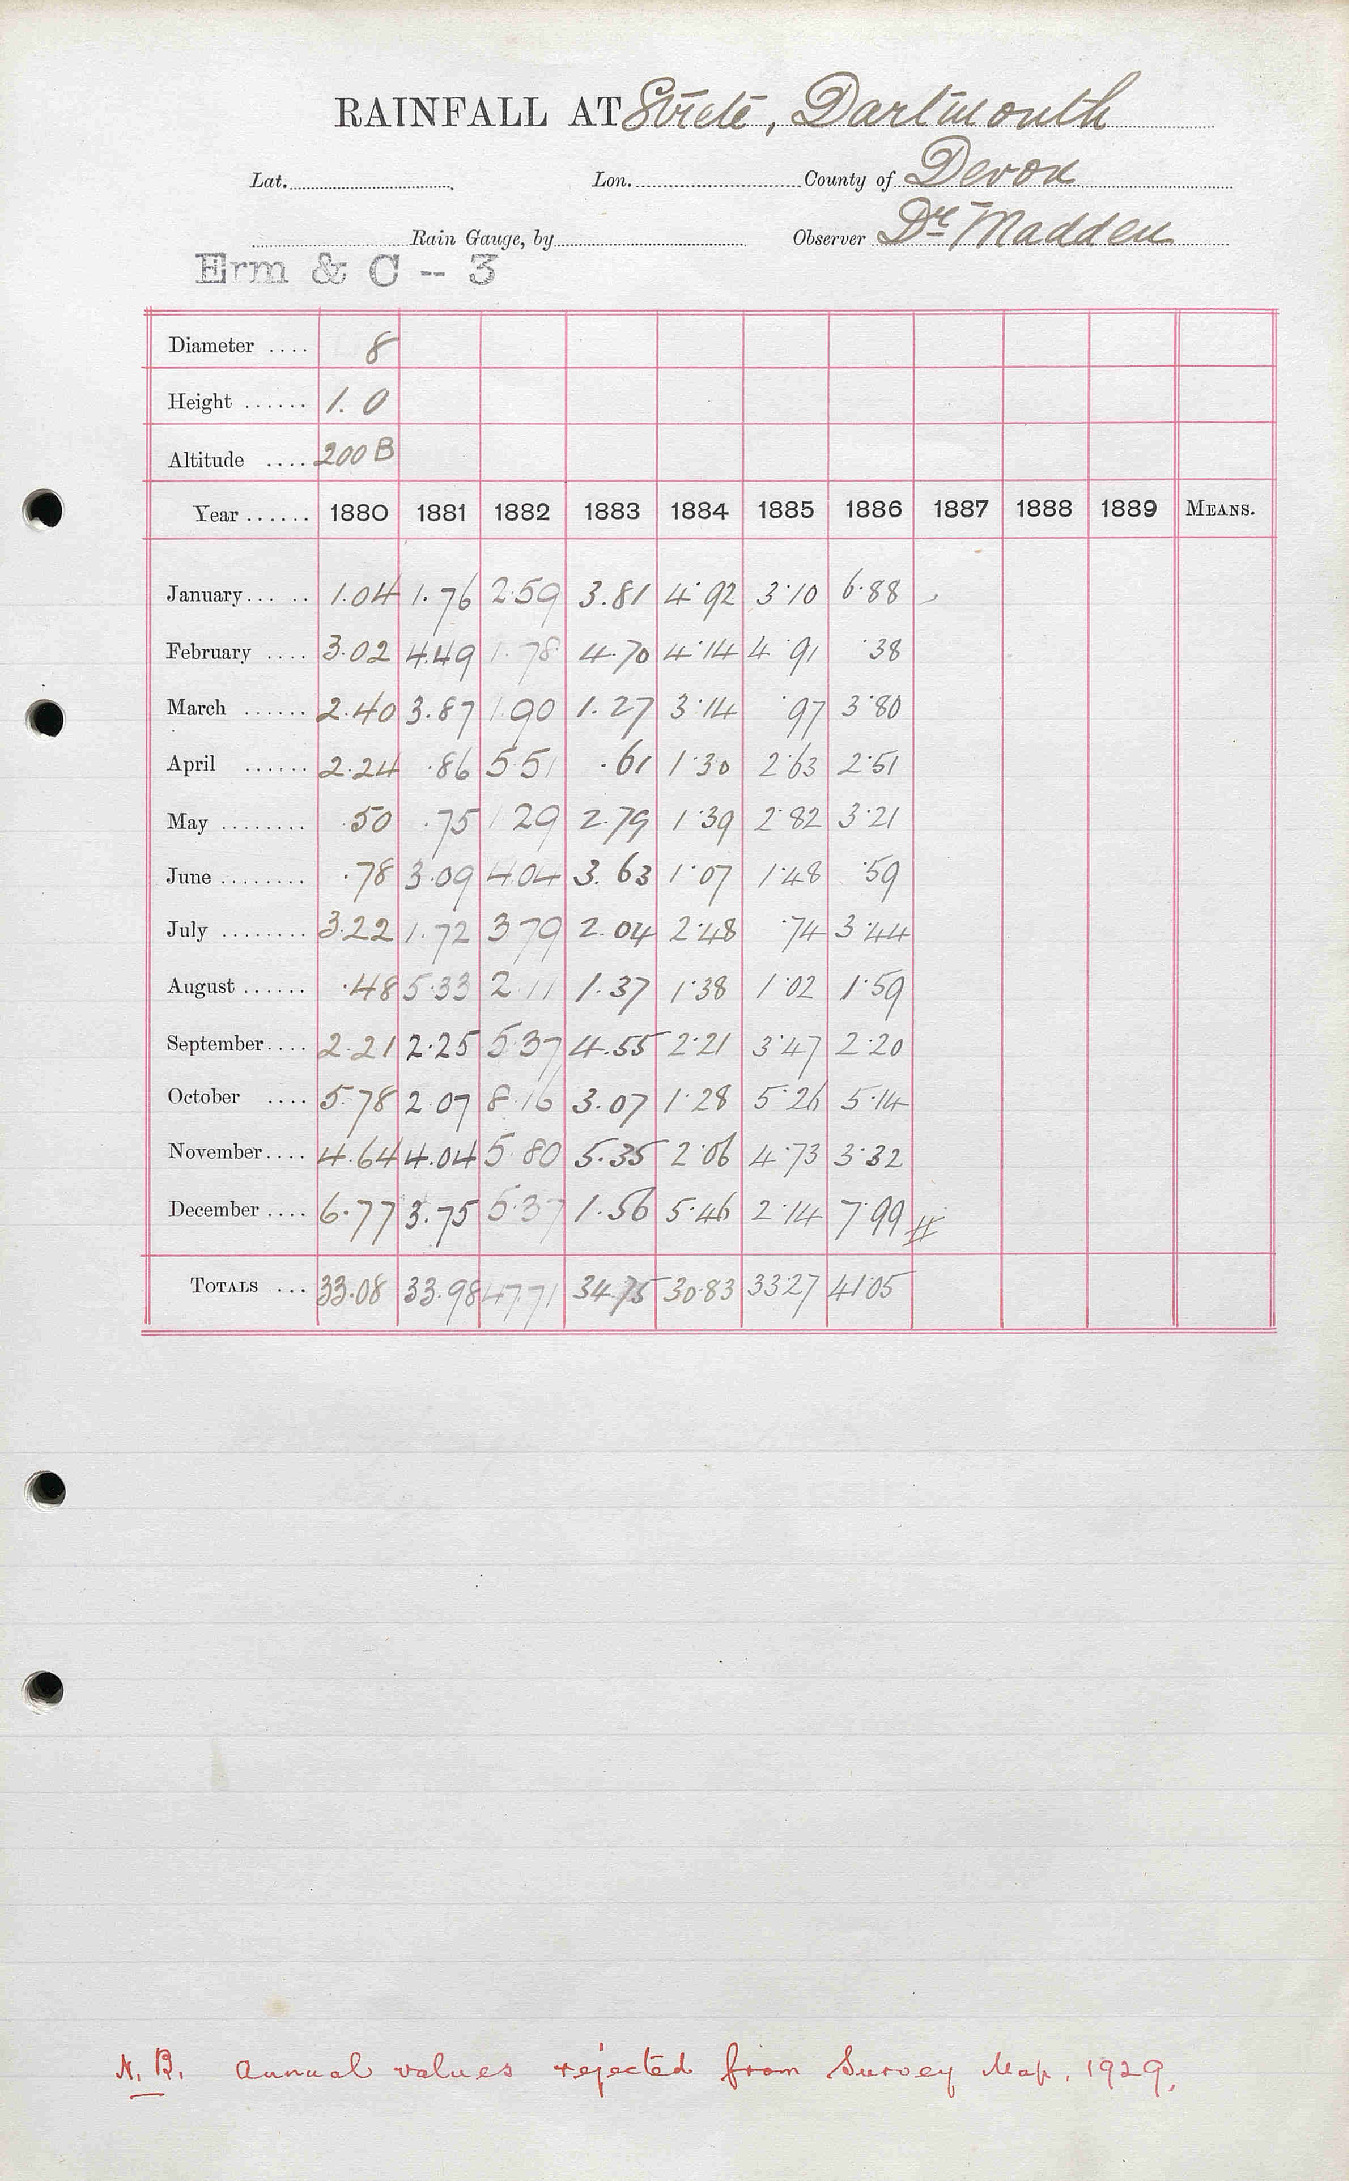 RAINFALL AT Strete, Dartmouth
Lat. Lon. County of Devon
Rain Gauge, by Observer Dr. Madden
Erm & C - 3
Diameter .... 8
Height ...... 1.0
Altitude .... 200 B
Year ...... 1880 1881 1882 1883 1884 1885 1886 1887 1888 1889 MEANS.
January... .. 1.04 1.76 2.59 3.81 4.92 3.10 6.88
February .... 3.02 4.49 1.78 4.70 4.14 4.91 .38
March ...... 2.40 3.87 1.90 1.27 3.14 .97 3.80
April ...... 2.24 .86 5.51 .61 1.30 2.63 2.51
May ........ .50 .75 1.29 2.79 1.39 2.82 3.21
June ........ .78 3.09 4.04 3.63 1.07 1.48 .59
July ........ 3.22 1.72 3.79 2.04 2.48 .74 3.44
August ...... .48 5.33 2.11 1.37 1.38 1.02 1.59
September.... 2.21 2.25 5.37 4.55 2.21 3.47 2.20
October .... 5.78 2.07 8.16 3.07 1.28 5.26 5.14
November.... 4.64 4.04 5.80 5.35 2.06 4.73 3.32
December .... 6.77 3.75 5.37 1.56 5.46 2.14 7.99 #
TOTALS ... 33.08 33.98 47.71 34.75 30.83 33.27 41.05
N.B. Annual values rejected from Survey Map, 1929.